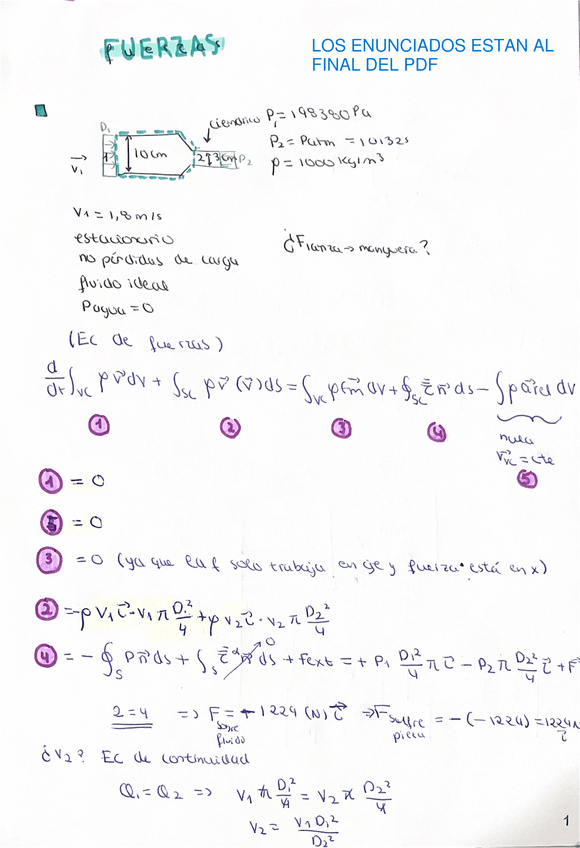 FUERZAS
LOS ENUNCIADOS ESTAN AL
FINAL DEL PDF
cilíndrico P₁= 198380 Pa
D₁
P₂ = Patm = 101325
1 10cm 2 3cm P₂
ρ = 1000 Kg/m³
V₁
V₁ = 1,8 m/s
estacionario
¿F lanza → manguera?
no pérdidas de carga
fluido ideal
Pagua = 0
(Ec de fuerzas)
d/dt ∫VC ρ v⃗ dv + ∫SC ρv⃗ (v⃗) ds = ∫VC ρ f⃗m dv + ∮SC τ̿ n⃗ ds − ∫ρ a⃗rel dv
1 2 3 4
nula
v⃗VC = cte
5
1 = 0
5 = 0
3 = 0 (ya que la f solo trabaja en eje y fuerza está en x)
2 = -ρ V₁ i⃗ · V₁ π D₁²/4 + ρ V₂ i⃗ · V₂ π D₂²/4
4 = − ∮S P n⃗ ds + ∫S τ̿ n⃗ ds + Fext = + P₁ D₁²/4 π i⃗ − P₂ π D₂²/4 i⃗ + F
0
2=4 => F = -1224 (N) i⃗ => F sobre pieza = − (−1224) = 1224N i⃗
sobre
fluido
¿V₂? Ec de continuidad
Q₁ = Q₂ => V₁ π D₁²/4 = V₂ π D₂²/4
V₂ = V₁ D₁²/D₂²
1